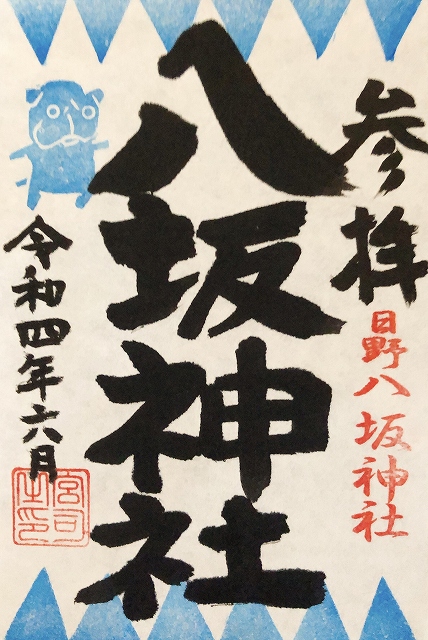 参拝
日野八坂神社
八坂神社
令和四年六月
宮司之印